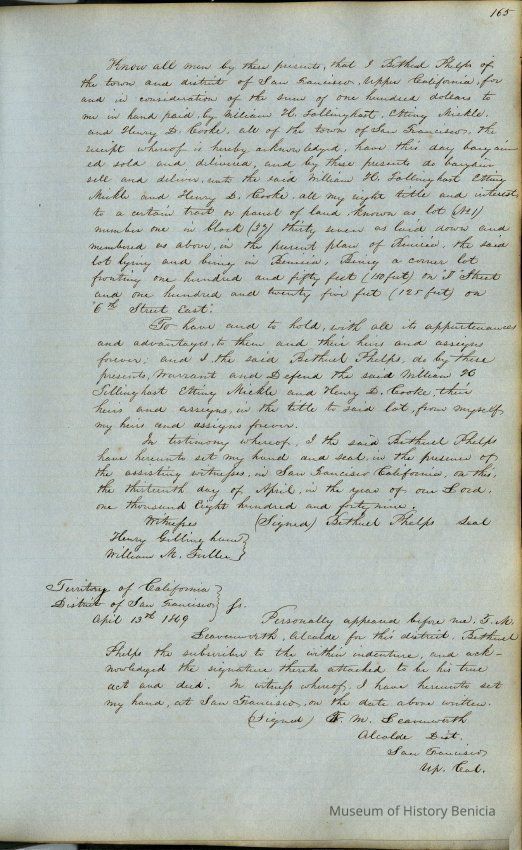 165
Know all men by these presents, that I Bethuel Phelps of
the town and district of San Francisco, Upper California, for
and in consideration of the sum of one hundred dollars to
me in hand paid, by William H. Tillinghast, Etting Mickle,
and Henry D. Cooke, all of the town of San Francisco, the
receipt whereof is hereby acknowledged, have this day bargain
ed sold and delivered, and by these presents do bargain
sell and deliver, unto the said William H. Tillinghast Etting
Mickle and Henry D. Cooke, all my right title and interest,
to a certain tract or parcel of land, known as lot (No 1)
number one in block (37) thirty seven as laid down and
numbered as above, in the present plan of Benicia, the said
lot lying and being in Benicia, Being a corner lot
fronting one hundred and fifty feet (150 feet) on I Street
and one hundred and twenty five feet (125 feet) on
6th Street East.
To have and to hold, with all its appurtenances
and advantages, to them and their heirs and assigns
forever; and I the said Bethuel Phelps, do by these
presents, Warrant and Defend the said William H
Tillinghast Etting Mickle and Henry D. Cooke, their
heirs and assigns, in the title to said lot, from myself,
my heirs and assigns forever.
In testimony whereof, I the said Bethuel Phelps
have hereunto set my hand and seal, in the presence of
the assisting witnesses, in San Francisco California, on this,
the thirteenth day of April, in the year of our Lord,
one thousand Eight hundred and forty nine.
Witnesses (Signed) Bethuel Phelps Seal
Henry Gillingham
William M. Fuller
Territory of California
District of San Francisco ss.
April 13th 1849 Personally appeared before me, T. M.
Leavenworth, Alcalde for this district, Bethuel
Phelps the subscriber to the within indenture, and ack-
nowledged the signature thereto attached to be his true
act and deed. In witness whereof, I have hereunto set
my hand, at San Francisco, on the date above written.
(Signed) T. M. Leavenworth
Alcalde Dist.
San Francisco
Up. Cal.
Museum of History Benicia